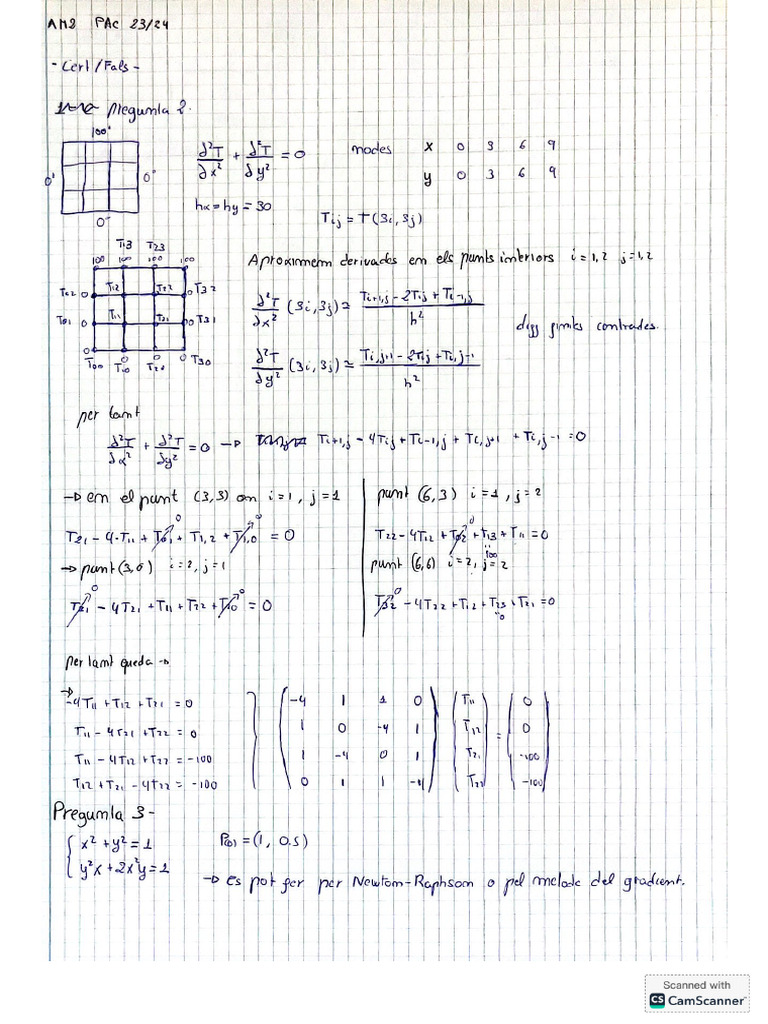 AM2 PAC 23/24
- Cert/Fals -
Pregunta 2.
100°
0° 0°
0°
∂²T/∂x² + ∂²T/∂y² = 0
hx = hy = 30
nodes x 0 3 6 9
y 0 3 6 9
Tij = T(3i, 3j)
T13 T23
100 100 100 100
T02 0 T12 T22 0 T32
T01 0 T11 T21 0 T31
0 0 0 0 T30
T00 T10 T20
Aproximem derivades en els punts interiors i = 1,2 j = 1,2
∂²T/∂x² (3i, 3j) ≃ (Ti+1,j - 2Tij + Ti-1,j)/h²
diff finites centrades.
∂²T/∂y² (3i, 3j) ≃ (Ti,j+1 - 2Tij + Ti,j-1)/h²
per tant
∂²T/∂x² + ∂²T/∂y² = 0 → Ti+1,j - 4Tij + Ti-1,j + Ti,j+1 + Ti,j-1 = 0
→ en el punt (3,3) on i = 1, j = 1
T21 - 4·T11 + T0,1 + T1,2 + T1,0 = 0
0 0
→ punt (3,6) i = 2, j = 1
0 0
- 4T21 + T11 + T22 + = 0
punt (6,3) i = 1, j = 2
0
T22 - 4T12 + T02 + T13 + T11 = 0
100
punt (6,6) i = 2, j = 2
0
T32 - 4T22 + T12 + T23 + T21 = 0
"0
per tant queda →
→
-4T11 + T12 + T21 = 0
T11 - 4T21 + T22 = 0
T11 - 4T12 + T22 = -100
T12 + T21 - 4T22 = -100
-4 1 1 0 T11 0
1 0 -4 1 T12 0
1 -4 0 1 T21 = -100
0 1 1 -4 T22 -100
Pregunta 3-
x² + y² = 1
y²x + 2x²y = 1
P(0) = (1, 0.5)
→ es pot fer per Newton-Raphson o pel metode del gradient.
Scanned with
CS CamScanner